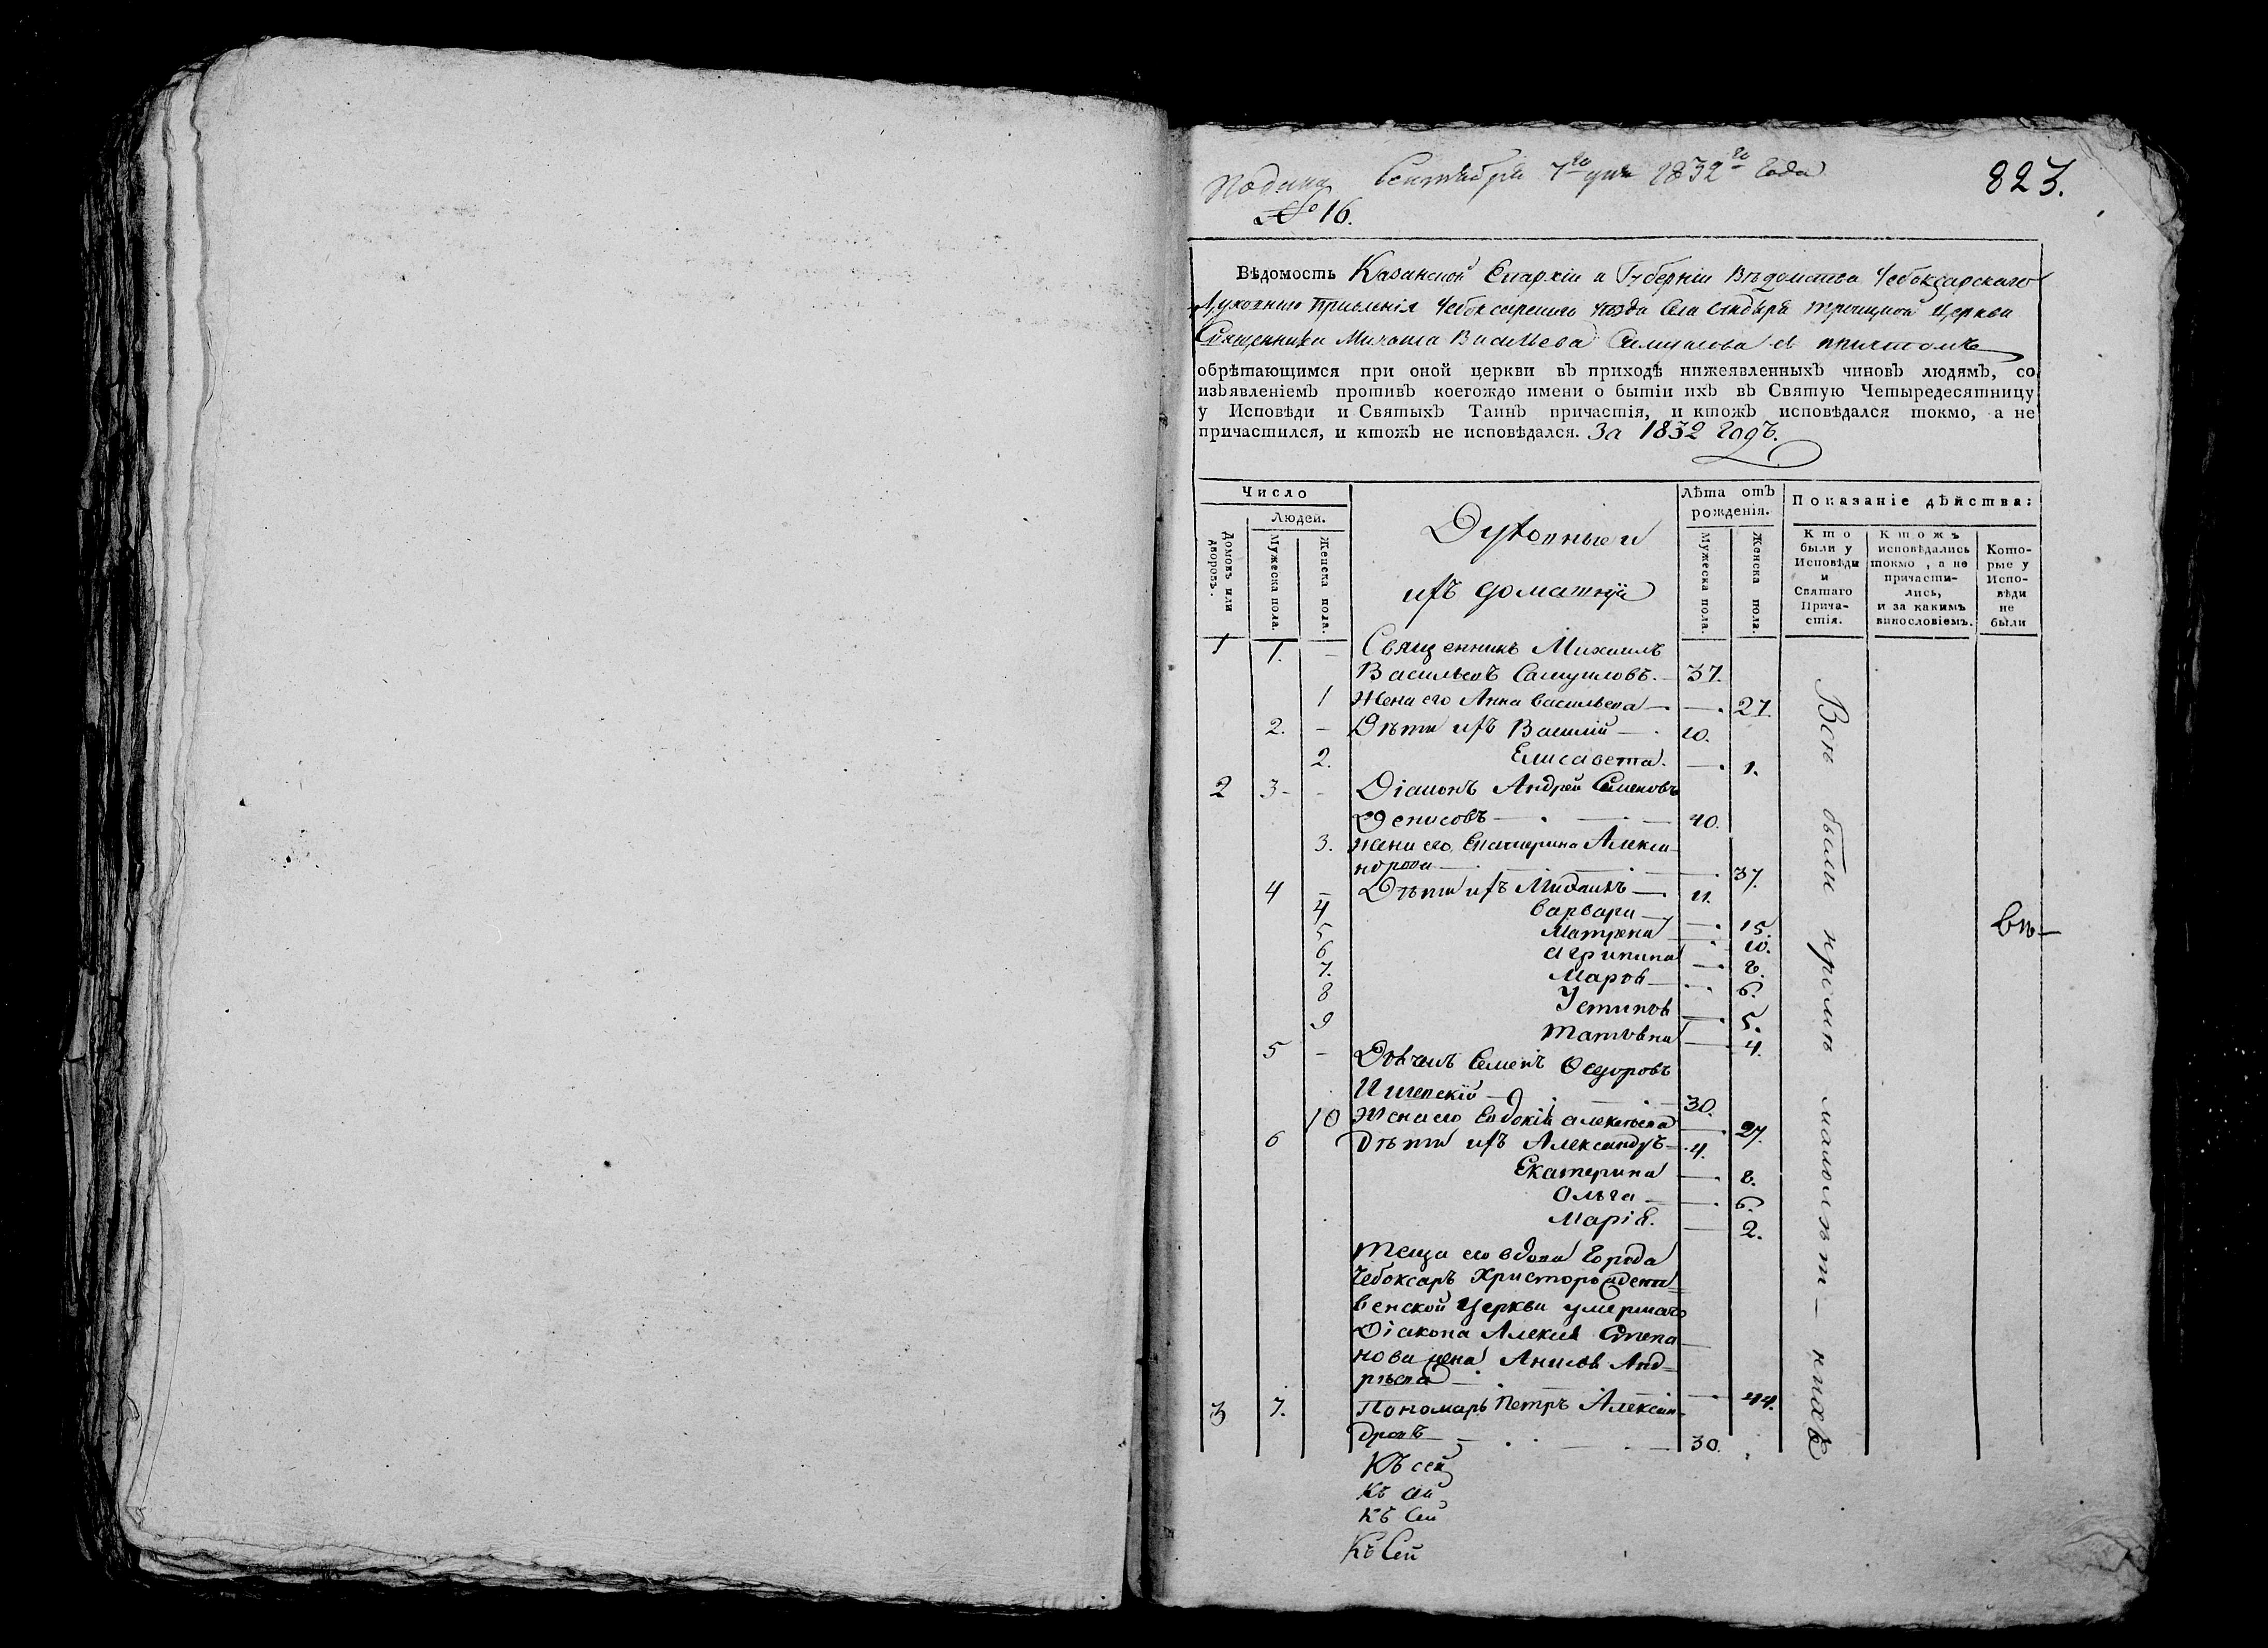 Подана Сентября 7го дня 1832го Года
823.
№ 16.
Вѣдомость Казанской Епархіи и Губерніи Вѣдомства Чебоксарскаго
Духовнаго Правленія Чебоксарскаго уѣзда Села Сюндыря Троицкой Церкви
Священника Михаила Васильева Самуилова съ причтомъ
обрѣтающимся при оной церкви въ приходѣ нижеявленныхъ чиновъ людямъ, со
изъявленіемъ противъ коегождо имени о бытіи ихъ въ Святую Четыредесятницу
у Исповѣди и Святыхъ Таинъ причастія, и ктожъ исповѣдался токмо, а не
причастился, и ктожъ не исповѣдался. За 1832 Годъ.
Число
Людей.
Домовъ или дворовъ.
Мужеска пола.
Женска пола.
Духовные и
ихъ домашніи
Лѣта отъ рожденія.
Мужеска пола.
Женска пола.
Показаніе дѣйства:
Кто были у Исповѣди и Святаго Прича-стія.
Ктожъ исповѣдались токмо, а не причасти-лись, и за какимъ винословіемъ.
Кото-рые у Испо-вѣди не были
1 1. — Священникъ Михаилъ
Васильевъ Самуиловъ. — 37.
1 Жена его Анна Васильева — — 27.
2. — Дѣти ихъ Василій — 10.
2. Елисавета. — 1.
2 3 - - Діаконъ Андрей Семеновъ
Денисовъ — — 40.
3. жена его Екатерина Алекса-
ндрова — — 37.
4 — Дѣти ихъ Михаилъ — 11.
4 Варвара — — 15.
5 Матрена — 10.
6 Агрипина — 8.
7. Марѳа — 6.
8 Устинья — 5.
9 Татьяна — 4.
5 — Дьячекъ Семенъ Ѳедоровъ
30.
10 Жена его Евдокія Алексѣева — 27.
6 Дѣти ихъ Александръ — 4.
Екатерина — 8.
Ольга — 6.
Марія. — 2.
Теща его вдова Города
Чебоксаръ Христорождест-
венской Церкви умершаго
Діакона Алексѣя Степа-
нова жена Анисья Анд-
рѣева — 44.
3 7. Пономарь Петръ Алексан-
дровъ — 30.
Всѣ были кромѣ малолѣт-нихъ
Къ сей
Къ сей
Къ Сей
Къ Сей